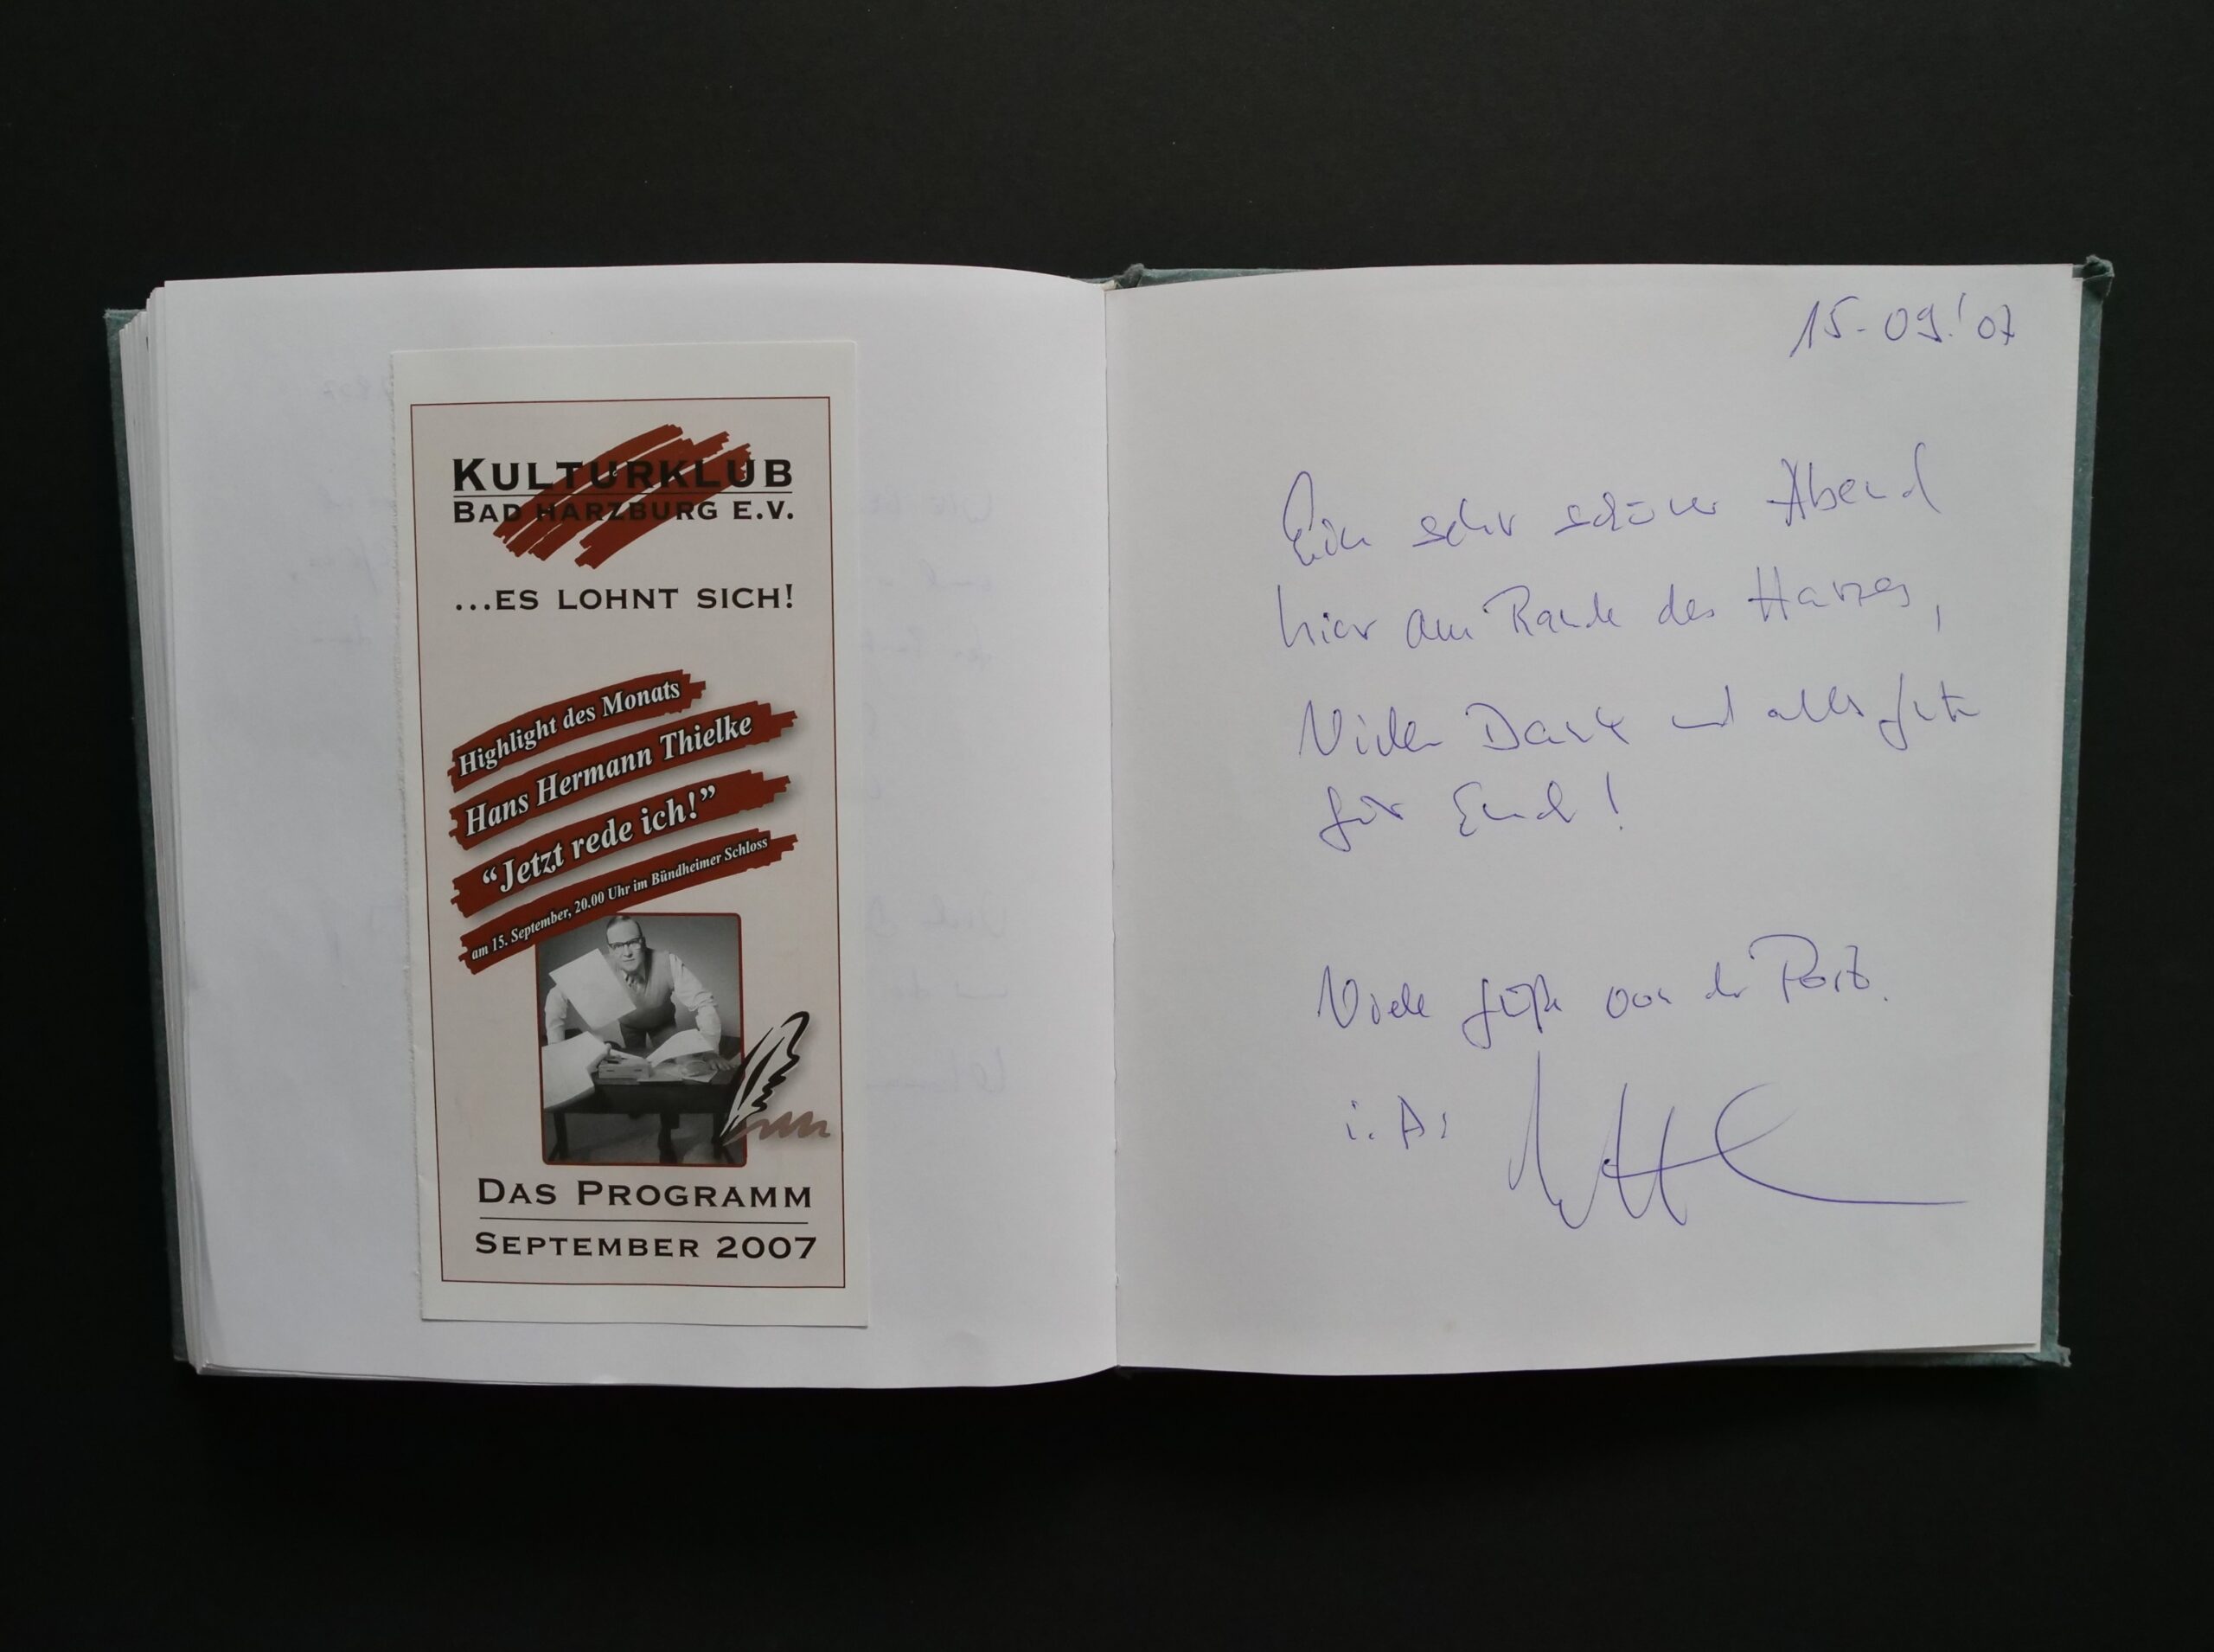 KULTURKLUB
BAD HARZBURG E.V.
...ES LOHNT SICH!
Highlight des Monats
Hans Hermann Thielke
“Jetzt rede ich!”
am 15. September, 20.00 Uhr im Bündheimer Schloss
DAS PROGRAMM
SEPTEMBER 2007
15.09.'07
Ein sehr schöner Abend
hier am Rande des Harzes,
Vielen Dank und alles gute
für Euch!
Viele Grüße von der Post.
i.A.